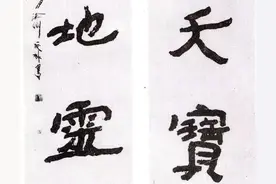 天寶
地靈